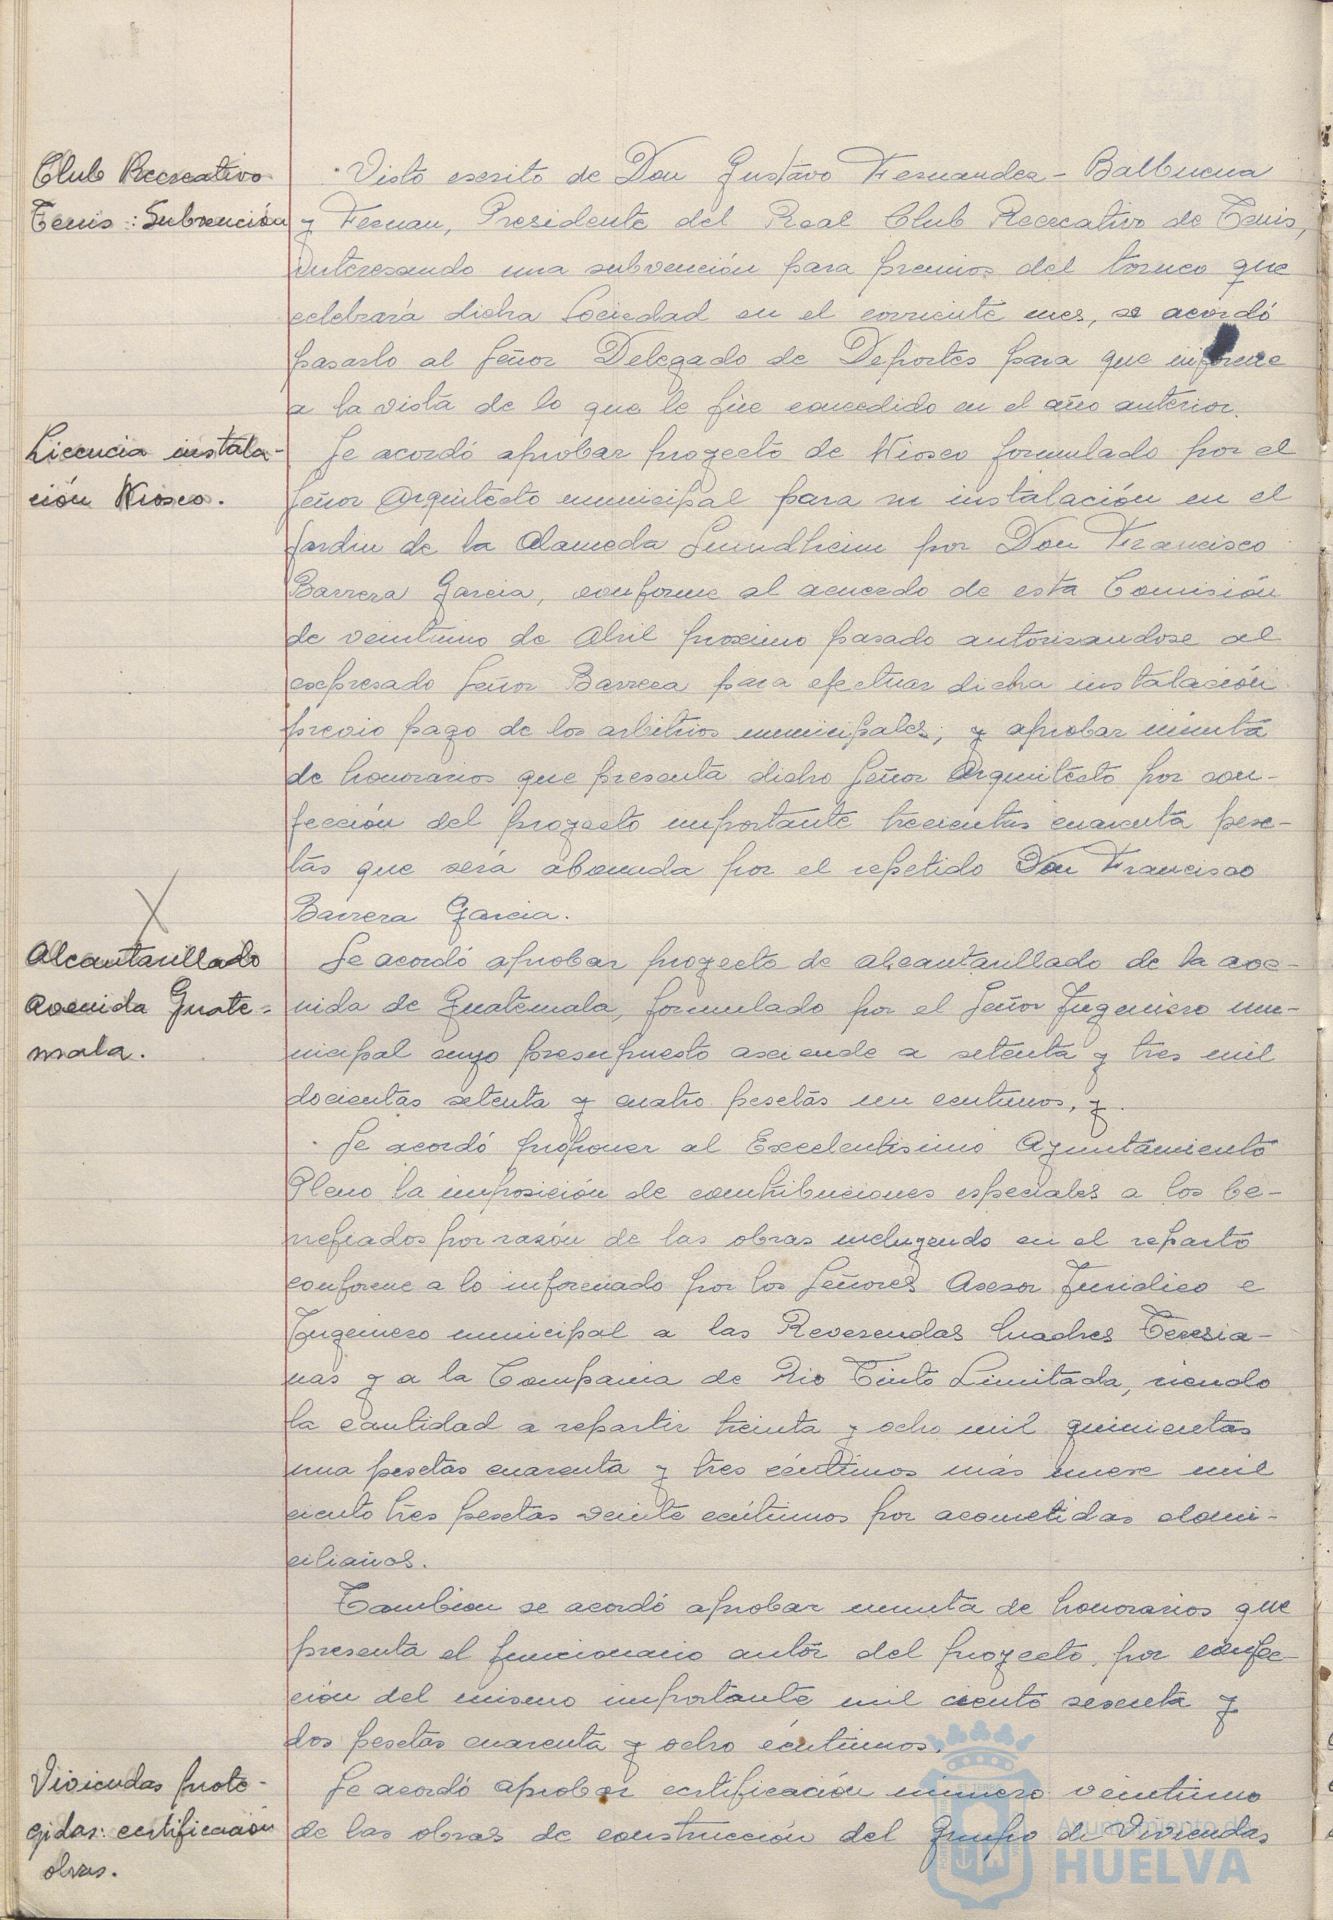 Club Recreativo
Tenis: Subvención
Visto escrito de Don Gustavo Fernandez-Balbuena
y Fernan, Presidente del Real Club Recreativo de Tenis,
interesando una subvención para premios del torneo que
celebrará dicha Sociedad en el corriente mes, se acordó
pasarlo al Señor Delegado de Deportes para que informe
a la vista de lo que le fué concedido en el año anterior.
Licencia instala-
ción Kiosco.
Se acordó aprobar proyecto de Kiosco formulado por el
Señor Arquitecto municipal para su instalación en el
Jardin de la Alameda Sumdheim por Don Francisco
Barrera Garcia, conforme al acuerdo de esta Comisión
de veintiuno de Abril proximo pasado autorizandose al
expresado Señor Barrera para efectuar dicha instalación
previo pago de los arbitrios municipales, y aprobar minuta
de honorarios que presenta dicho Señor Arquitecto por con-
fección del proyecto importante trecientas cuarenta pese-
tas que será abonada por el repetido Don Francisco
Barrera Garcia.
Alcantarillado
Avenida Guate-
mala.
Se acordó aprobar proyecto de alcantarillado de la ave-
nida de Guatemala, formulado por el Señor Ingeniero mu-
nicipal cuyo presupuesto asciende a setenta y tres mil
docientas setenta y cuatro pesetas un centimos, y
Se acordó proponer al Excelentisimo Ayuntamiento
Pleno la imposición de contribuciones especiales a los be-
neficiados por razón de las obras incluyendo en el reparto
conforme a lo informado por los Señores Asesor Juridico e
Ingeniero municipal a las Reverendas Madres Teresia-
nas y a la Compania de Rio Tinto Limitada, siendo
la cantidad a repartir treinta y ocho mil quinientas
una pesetas cuarenta y tres céntimos más nueve mil
ciento tres pesetas veinte céntimos por acometidas domi-
ciliarias.
Tambien se acordó aprobar minuta de honorarios que
presenta el funcionario autor del proyecto, por confec-
ción del mismo importante mil ciento sesenta y
dos pesetas cuarenta y ocho céntimos.
Viviendas prote-
gidas: certificación
obras.
Se acordó aprobar certificación número veintiuno
de las obras de construcción del Grupo de Viviendas
Ayuntamiento de
HUELVA